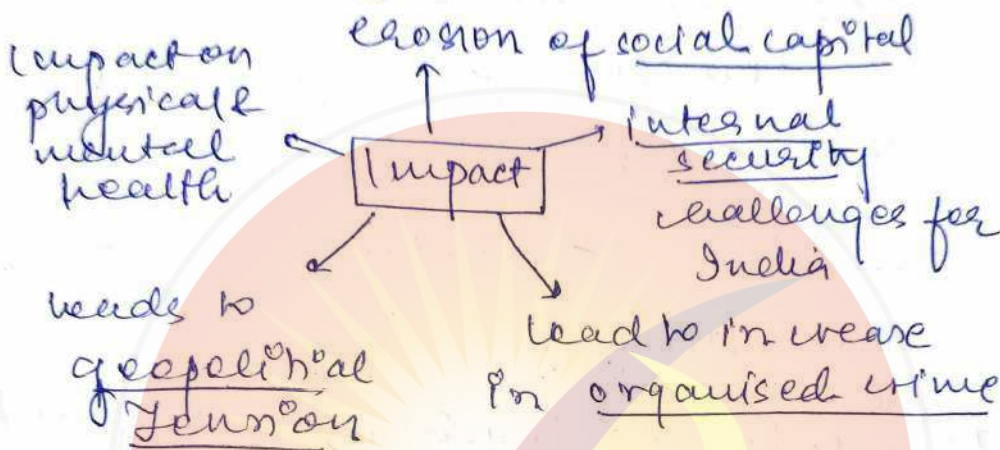 erosion of social capital
Impact on
physical &
mental
health
Impact
internal
security
challenges for
India
leads to
geopolitical
Tension
lead to increase
in organised crime